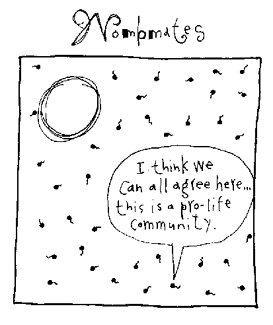 Wombmates
I think we
can all agree here...
this is a pro-life
community.